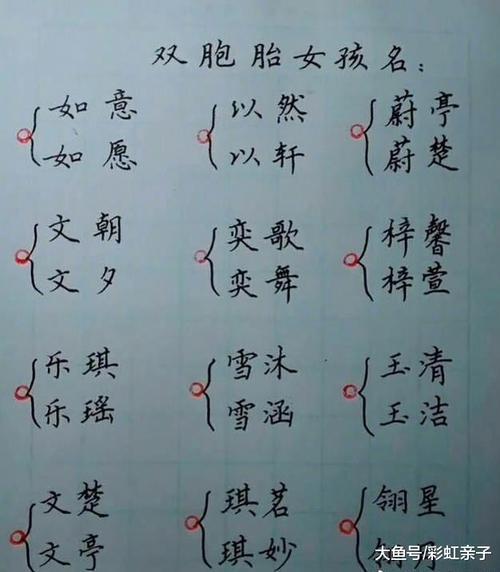 双胞胎女孩名：
如意 以然 蔚亭
如愿 以轩 蔚楚
文朝 奕歌 梓馨
文夕 奕舞 梓萱
乐琪 雪沐 玉清
乐瑶 雪涵 玉洁
文楚 琪茗 翎星
文亭 琪妙
大鱼号/彩虹亲子